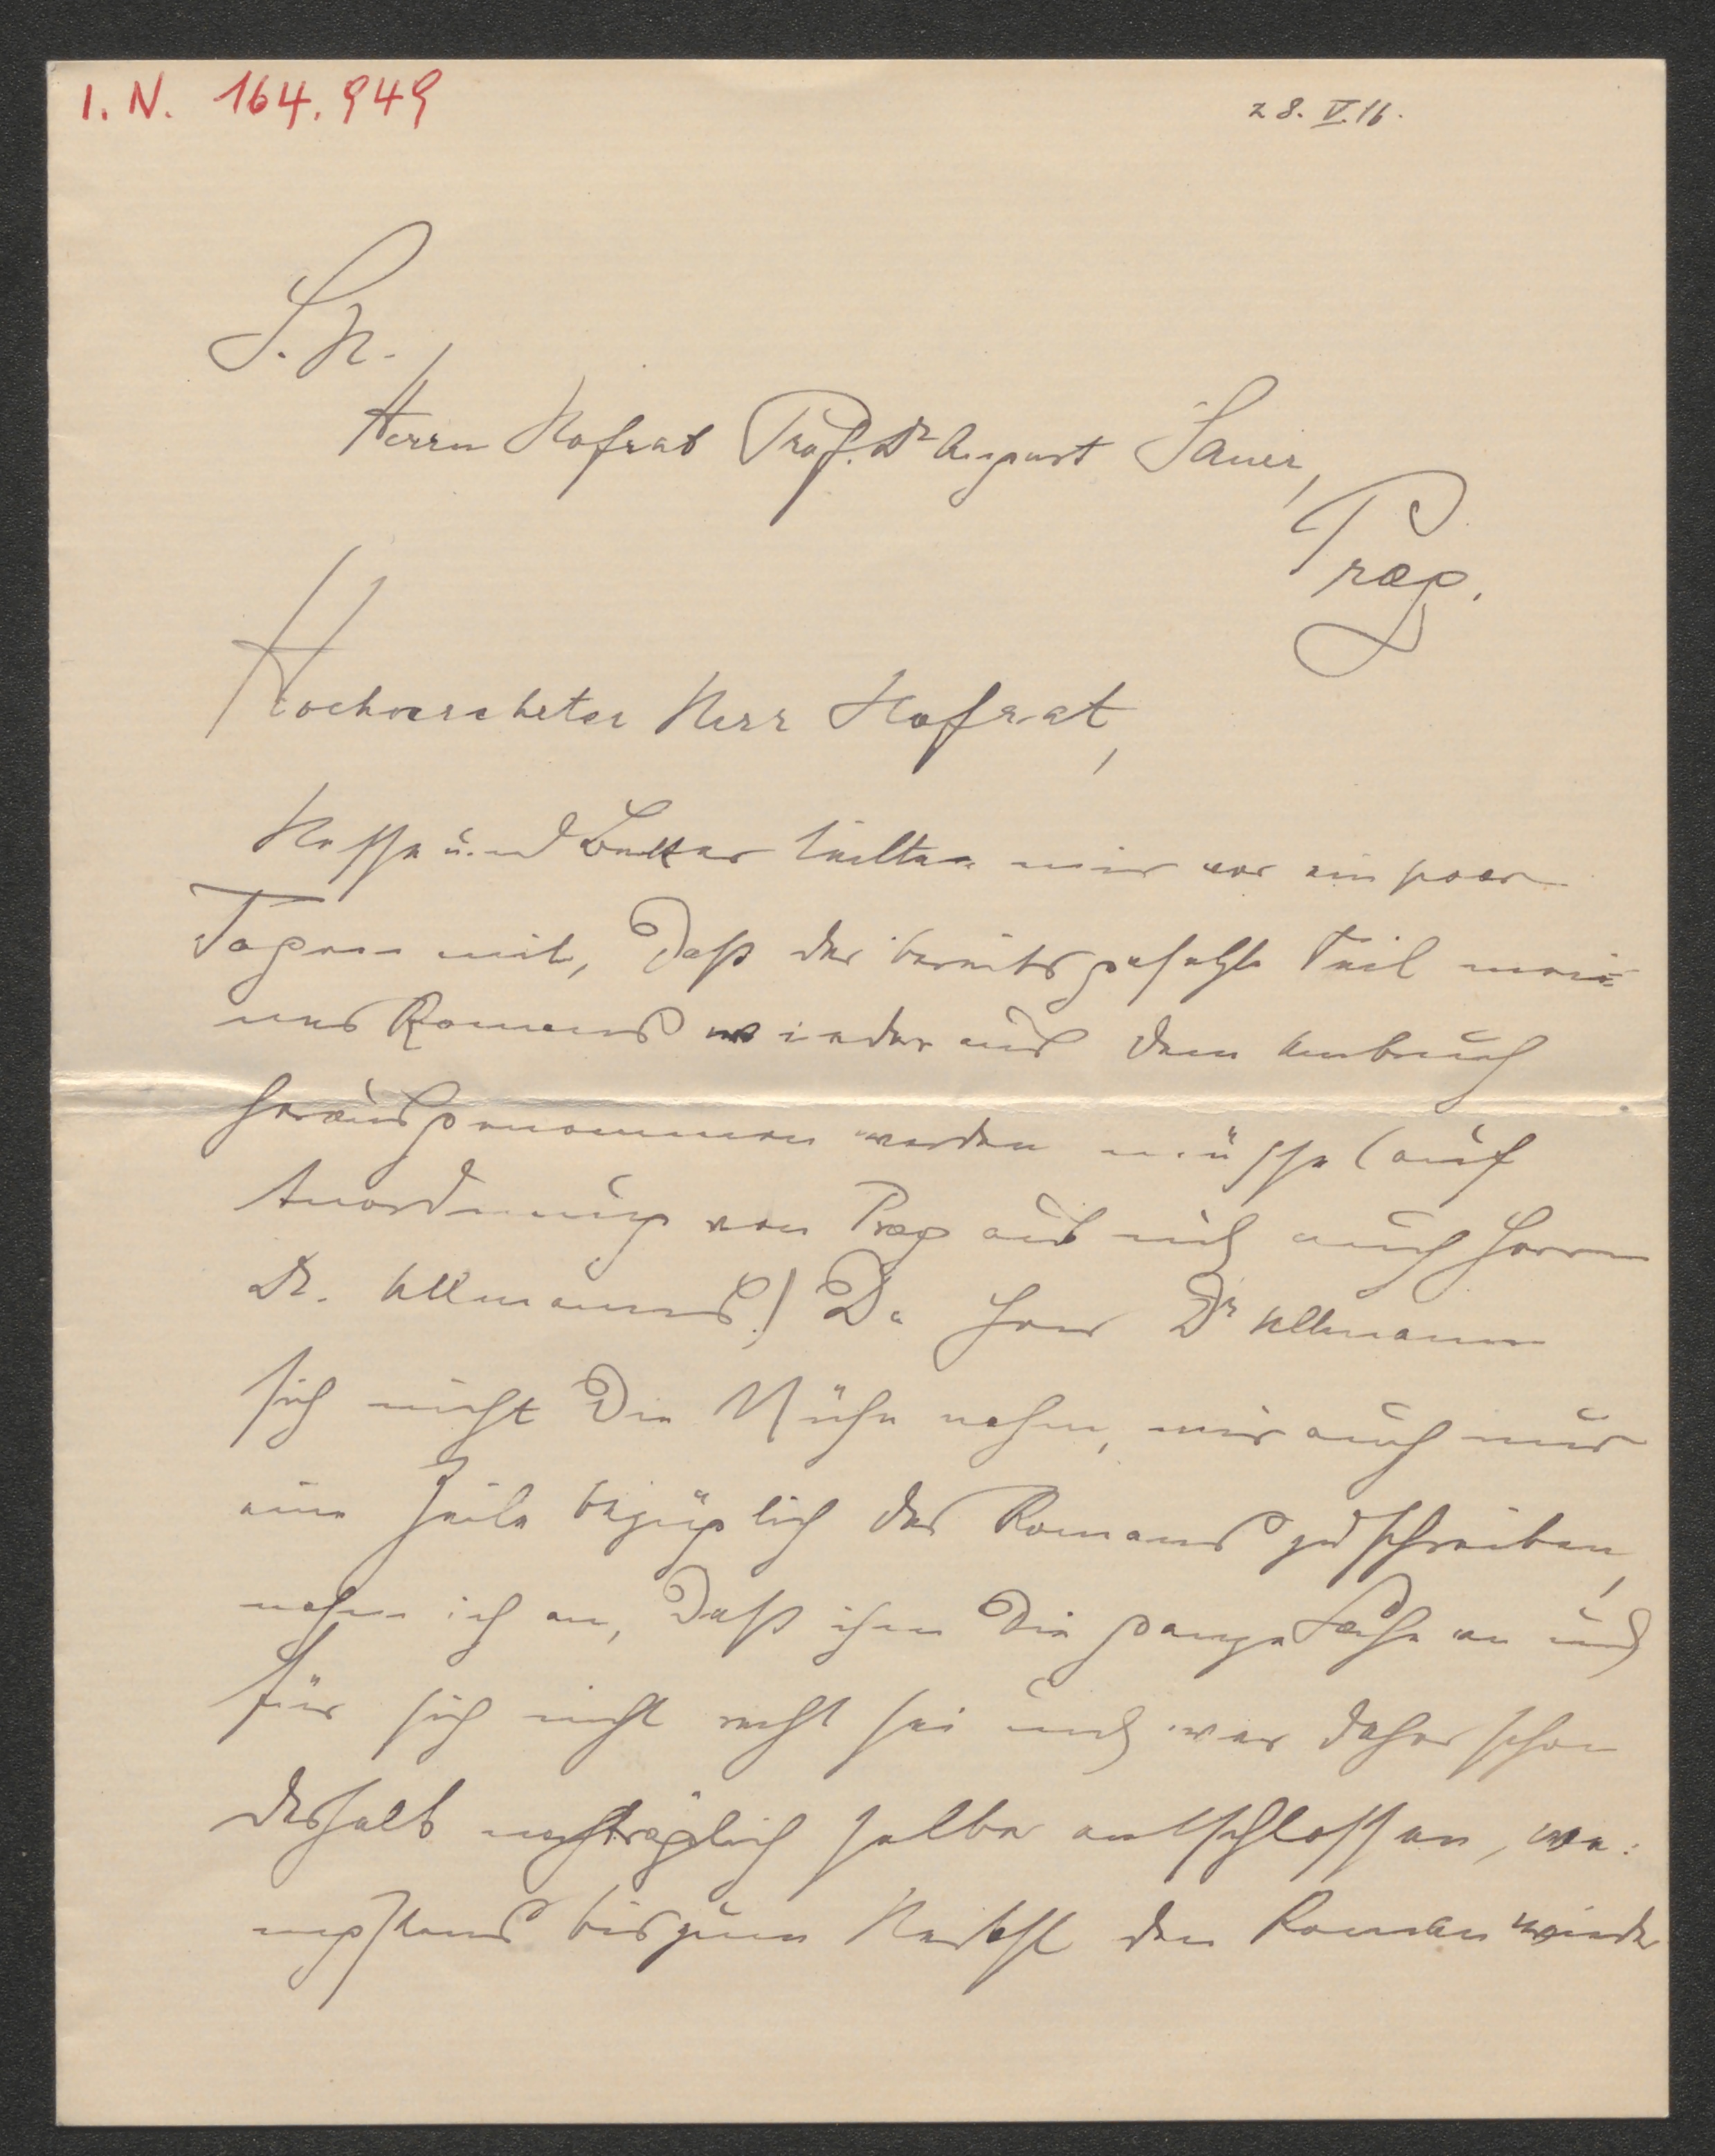 I. N. 164.949
28. V. 16.
S. H.
Herrn Hofrat Prof. Dr August Sauer,
Prag.
Hochverehrter Herr Hofrat,
Hesse und Becker teilten mir vor ein paar
Tagen mit, daß der bereits gesetzte Teil mei=
nes Romans wieder aus dem Umbruch
herausgenommen werden müsse (auf
Anordnung von Prag aus und auch Herrn
Dr. Ullmanns!) Da Herr Dr Ullmann
sich nicht die Mühe nahm, mir auch nur
eine Zeile bezüglich des Romans zu schreiben,
nahm ich an, daß ihm die ganze Sache an und
für sich nicht recht sei und war daher schon
deshalb nachträglich selber entschlossen, we:
nigstens bis zum Herbst den Roman wieder